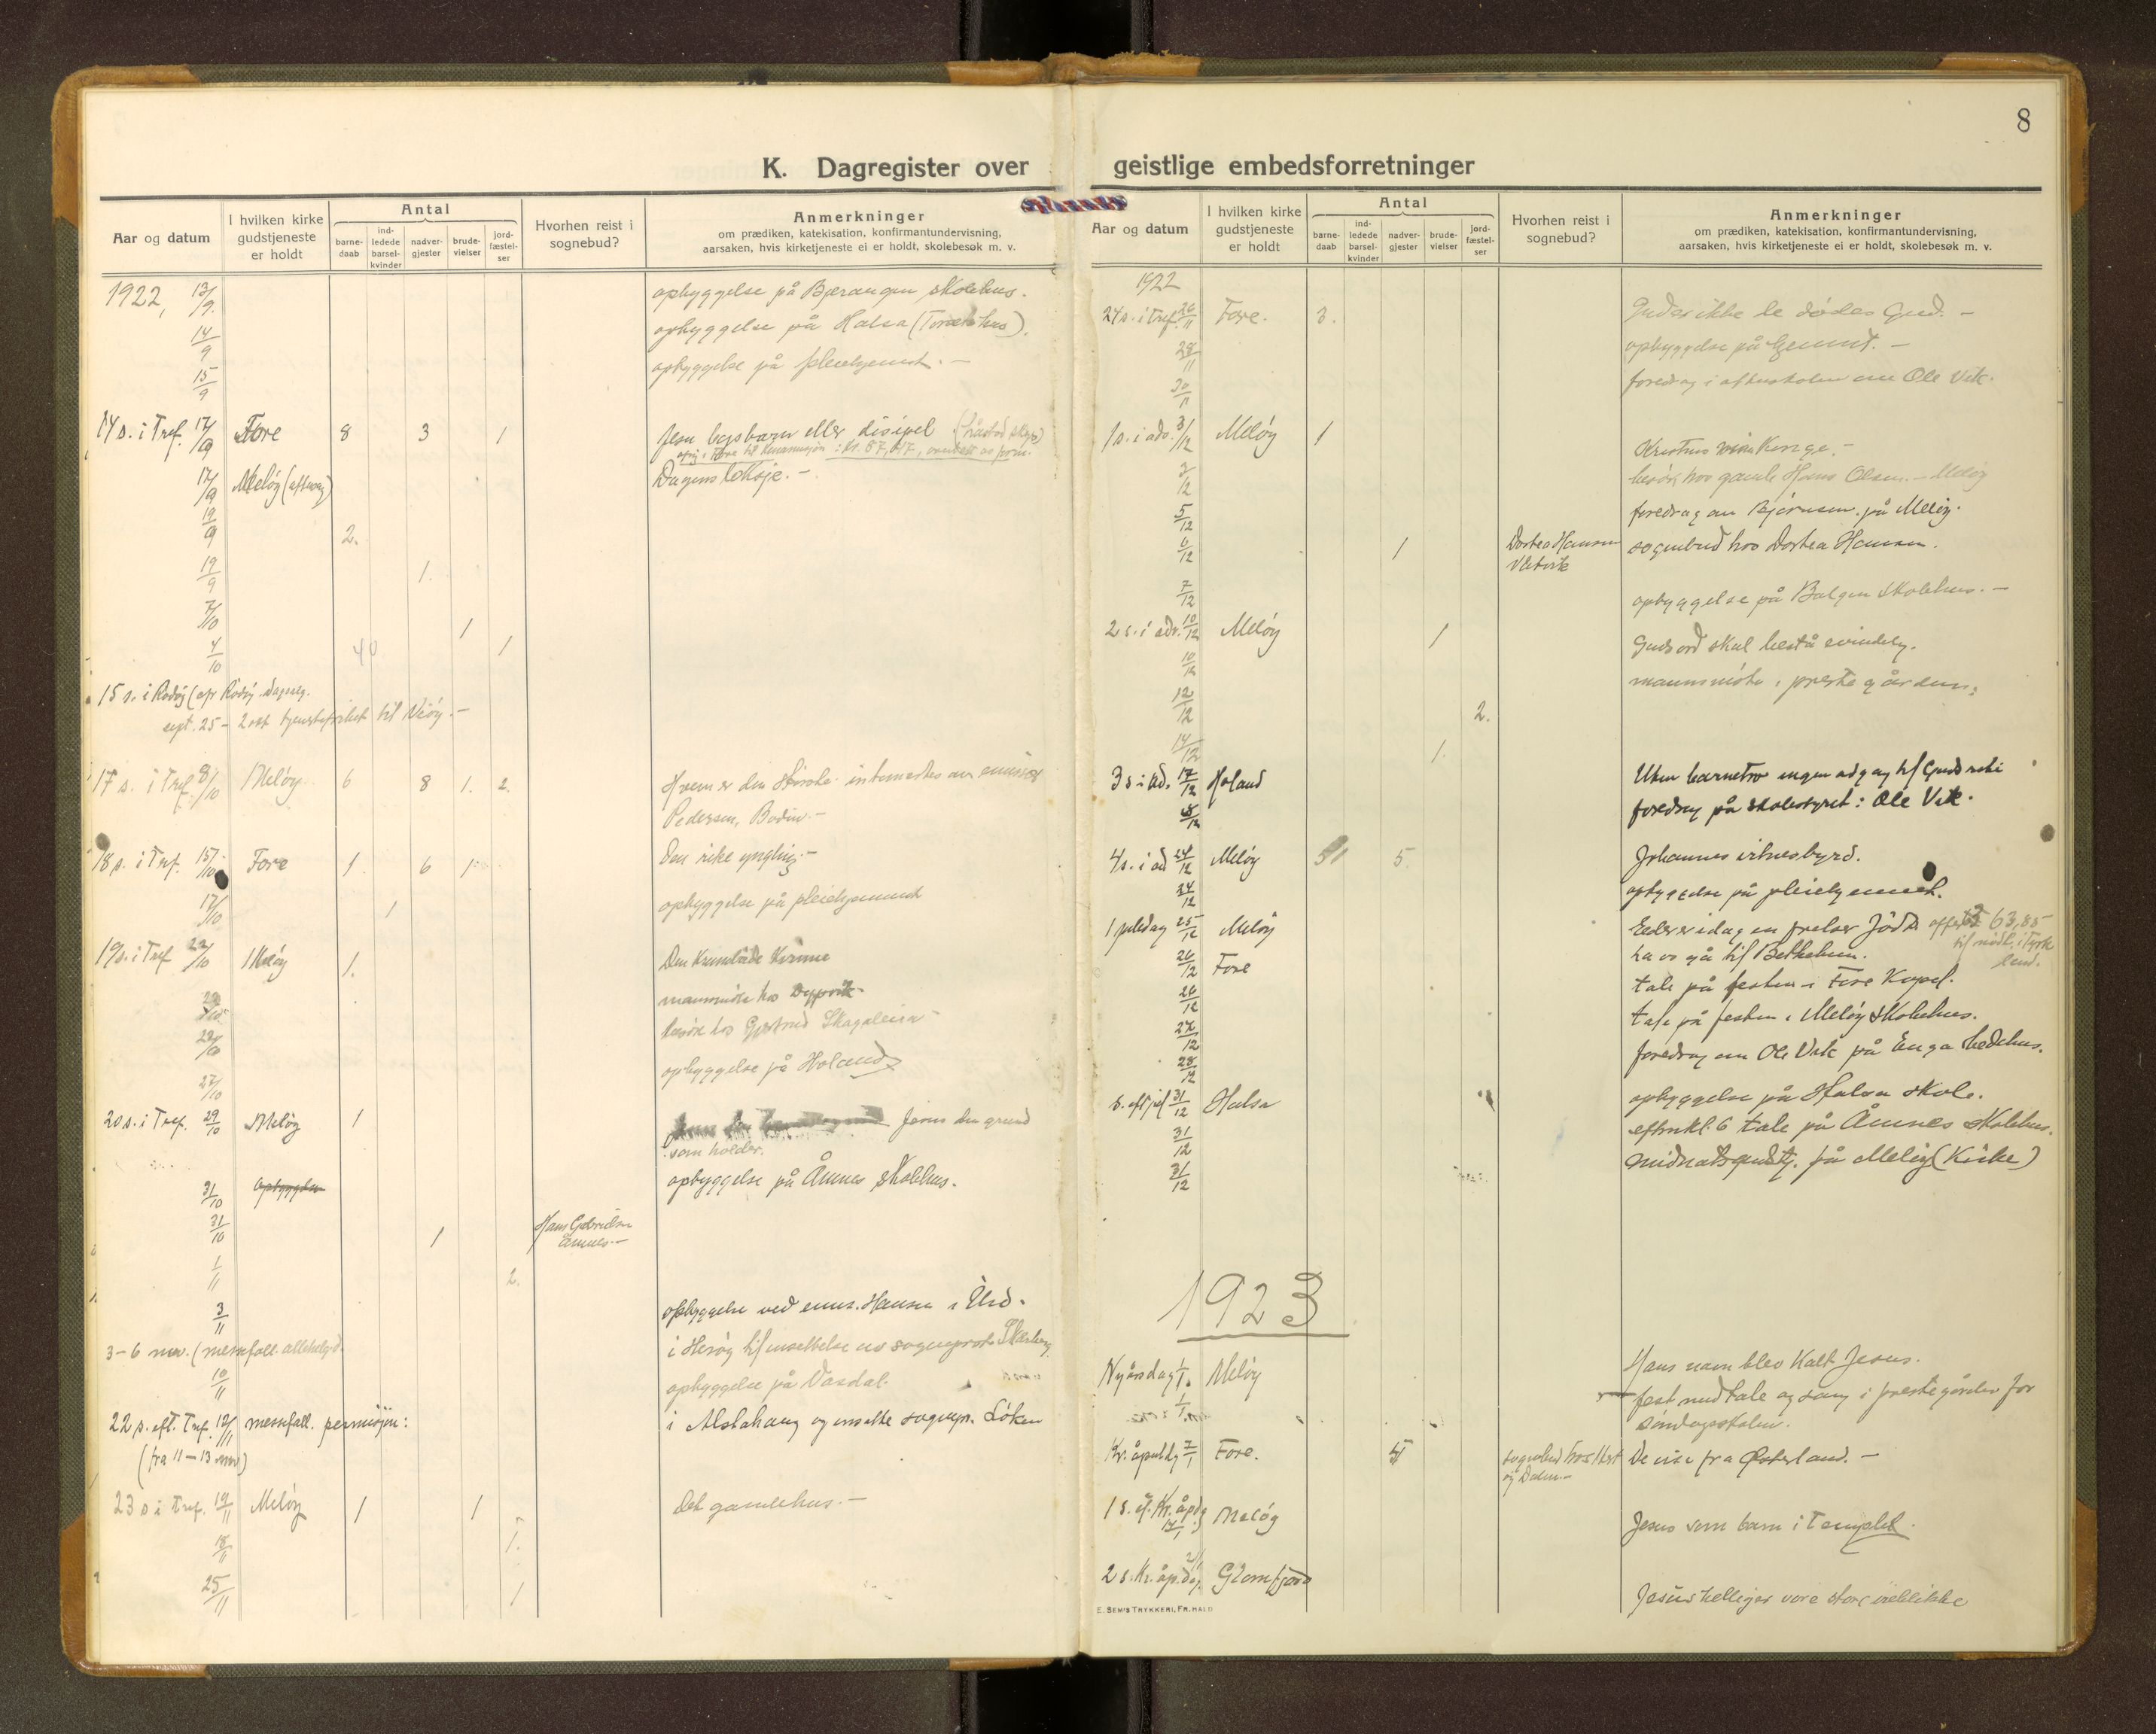 8
K. Dagregister over geistlige embedsforretninger
Aar og datum
I hvilken kirke gudstjeneste er holdt
Antal
barne-daab
ind-ledede barsel-kvinder
nadver-gjester
brude-vielser
jord-fæstel-ser
Hvorhen reist i sognebud?
Anmerkninger
om prædiken, katekisation, konfirmantundervisning,
aarsaken, hvis kirketjeneste ei er holdt, skolebesøk m. v.
1922, 13/9 opbyggelse på Bjerangen skolehus.
14/9 opbyggelse på Halsa
15/9 opbyggelse på pleiehjemmet. -
14 s. i Tref. 17/9 Fore 8 3 1 Jesu
Dagens lektsje. -
17/9 Meløy
19/9 2.
19/9 1.
7/10 1
4/10 40 1
15 s. i Rødøy
sept. 25 - 2 okt tjenestefrihet til -
17 s. i Tref. 8/10 Meløy 6 8 1. 2. Hvem er den største
Pedersen, Bodin. -
18 s. i Tref. 15/10 Fore 1 6 1 Den rike yngling. -
17/10 1 opbyggelse på pleiehjemmet
19 s. i Tref 22/10 Meløy 1. Den krumbøide kvinne
mannsmøte hos
besøk hos Gjertrud
27/10 opbyggelse på Holand
20 s. i Tref. 29/10 Meløy 1 Jesus den grund
som holder.
31/10 opbyggelse på Åmnes skolehus.
31/10 1 Hans Gabrielsen
Åmnes -
1/11 2.
3/11 opbyggelse ved emis. Hansen i
3-6 nov. (messefall i Herøy til innsettelse av sogneprest
10/11 opbyggelse på Vasdal.
22 s. eft. Tref. 12/11 messefall. permisjon: i Alstahaug og innsatte sognepr. Løken
(fra 11 - 13 nov)
23 s i Tref. 19/11 Meløy 1 1 Det gamle hus. -
18/11 1.
25/11 1
Aar og datum
I hvilken kirke gudstjeneste er holdt
Antal
barne-daab
ind-ledede barsel-kvinder
nadver-gjester
brude-vielser
jord-fæstel-ser
Hvorhen reist i sognebud?
Anmerkninger
om prædiken, katekisation, konfirmantundervisning,
aarsaken, hvis kirketjeneste ei er holdt, skolebesøk m. v.
1922
24 s. i Tref. 26/11 Fore. 3. Gud er ikke de dødes Gud. -
28/11 opbyggelse på hjemmet. -
30/11 foredrag i aftenskolen om Ole Vik.
1 s. i adv. 3/12 Meløy 1 Kristus konge. -
3/12 besøk hos gamle Hans Olsen. - Meløy
5/12 foredrag om Bjørnson på Meløy.
6/12 1 Dortea Hansen sognebud hos Dortea Hansen.
7/12 opbyggelse på Bolgen skolehus. -
2 s. i adv. 10/12 Meløy 1 Guds ord skal bestå evindelig.
10/12 mannsmøte i prestegården.
12/12 2.
14/12 1.
3 s i ad. 17/12 Holand Uten barnetro ingen adgang til Guds rike
foredrag på skolestyret: Ole Vik.
4 s. i ad 24/12 Meløy 5. Johannes vitnesbyrd.
24/12 opbyggelse på pleiehjemmet.
1 juledag 25/12 Meløy Eder er idag en frelser født. 63,85
26/12 Fore La os gå til Betlehem.
26/12 tale på festen i Fore kapel.
27/12 tale på festen i Meløy skolehus.
28/12 foredrag om Ole Vik på Enga bedehus.
s. eft jul 31/12 Halsa opbyggelse på Halsa skole.
31/12 eftm kl. 6 tale på Åmnes skolehus.
31/12 midnatsgudstj. på Meløy (Kirke)
1923
Nyårsdag 1/1. Meløy Hans navn blev kalt Jesus.
fest med tale og sang i prestegården for
søndagsskolen.
Kr. åpenb. 7/1 Fore. sognebud hos De vise fra Østerland. -
1 s. ef. Kr. åpb. 14/1 Meløy Jesus som barn i Templet.
2 s. Kr. åp. dag. 21/1 Glomfjord Jesus helliger vore store øieblikke
E. SEM'S TRYKKERI, FR.HALD